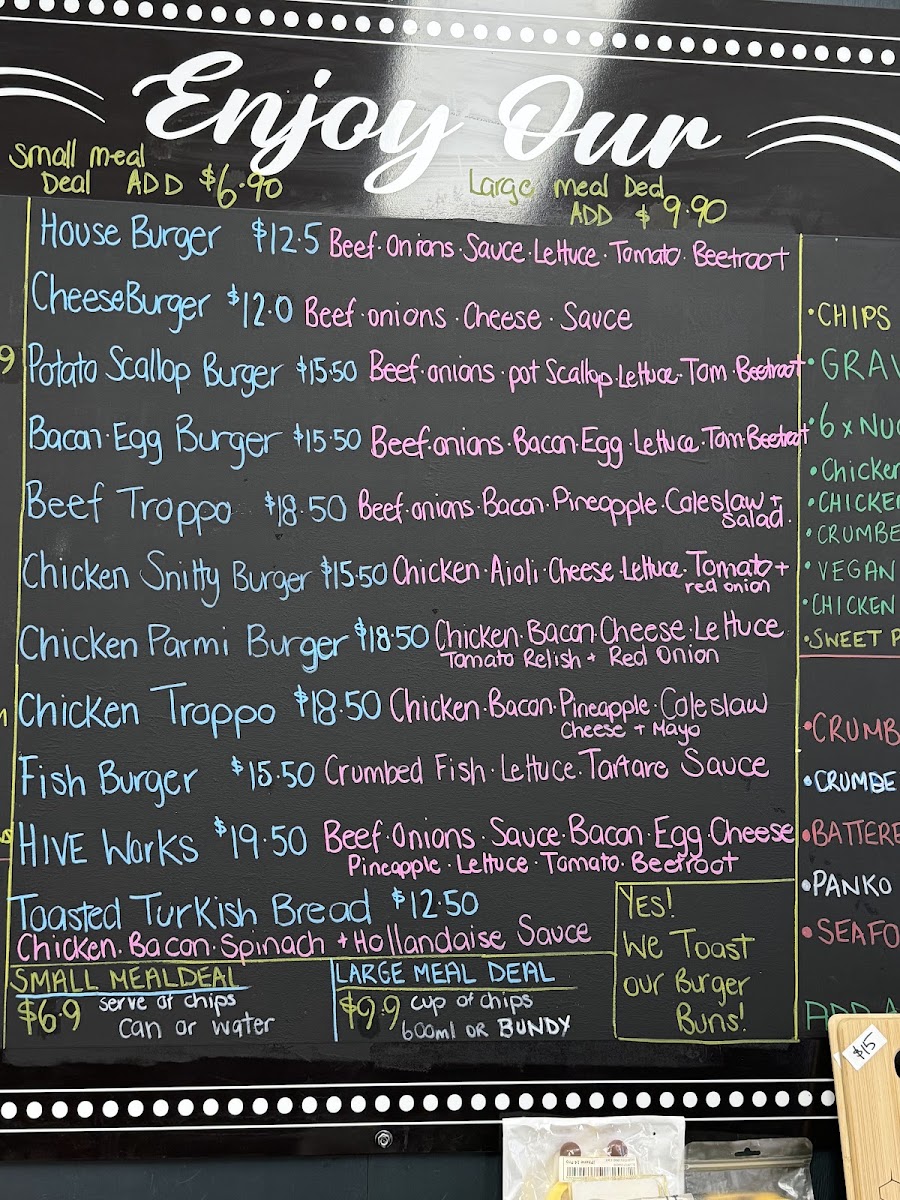 Enjoy Our
Small meal
Deal ADD $6.90
Large meal Deal
ADD $9.90
House Burger $12.5 Beef · Onions · Sauce · Lettuce · Tomato · Beetroot
CheeseBurger $12.0 Beef · onions · Cheese · Sauce
Potato Scallop Burger $15.50 Beef · onions · pot Scallop · Lettuce · Tom · Beetroot
Bacon · Egg Burger $15.50 Beef · onions · Bacon · Egg · Lettuce · Tom Beetroot
Beef Troppo $18.50 Beef · onions · Bacon · Pineapple · Coleslaw +
Salad.
Chicken Snitty Burger $15.50 Chicken · Aioli · Cheese Lettuce · Tomato +
red onion
Chicken Parmi Burger $18.50 Chicken · Bacon · Cheese · Lettuce
Tomato Relish + Red Onion
Chicken Troppo $18.50 Chicken · Bacon · Pineapple · Coleslaw
Cheese + Mayo
Fish Burger $15.50 Crumbed Fish · Lettuce · Tartare Sauce
HIVE Works $19.50 Beef · Onions · Sauce · Bacon · Egg · Cheese
Pineapple · Lettuce · Tomato · Beetroot
Toasted Turkish Bread $12.50
Chicken · Bacon · Spinach + Hollandaise Sauce
SMALL MEAL DEAL
$6.9 serve of chips
can or water
LARGE MEAL DEAL
$9.9 cup of chips
600ml OR BUNDY
YES!
We Toast
our Burger
Buns!
• CHIPS
• GRAV
• 6 x NUG
• Chicken
• CHICKEN
• CRUMBE
• VEGAN
• CHICKEN
• SWEET P
• CRUMB
• CRUMBE
• BATTERE
• PANKO
• SEAFO
ADD A
$15